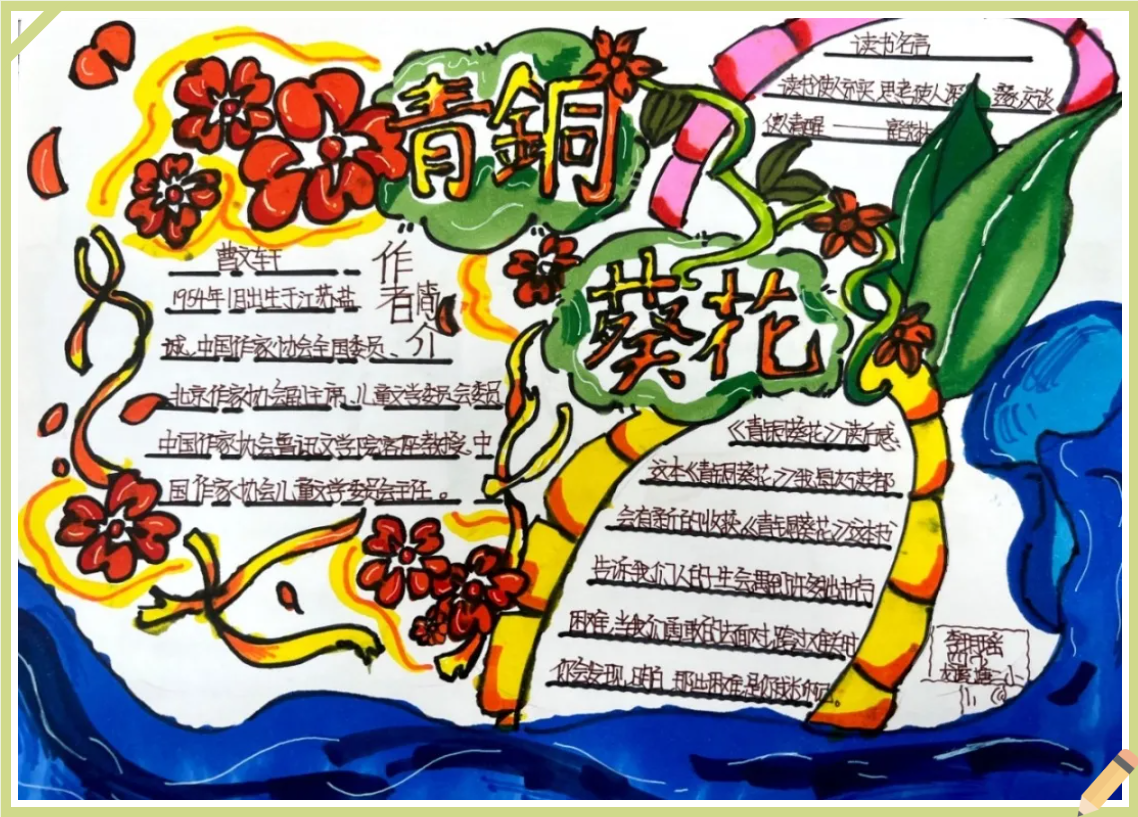 青銅
葵花
读书名言
读书使人充实,思考使人深邃,交谈
使人清醒 ——
作者简介
曹文轩
1954年1月出生于江苏盐
城、中国作家协会全国委员、
北京作家协会副主席、儿童文学委员会委员
中国作家协会鲁迅文学院客座教授、中
国作家协会儿童文学委员会主任。
《青铜葵花》读后感
这本《青铜葵花》我每次读都
会有新的收获《青铜葵花》这本书
告诉我们人的一生会遇到许多挫折与
困难,当我们勇敢的去面对,跨过难关时
你会发现,明白,那些困难,是你成长的